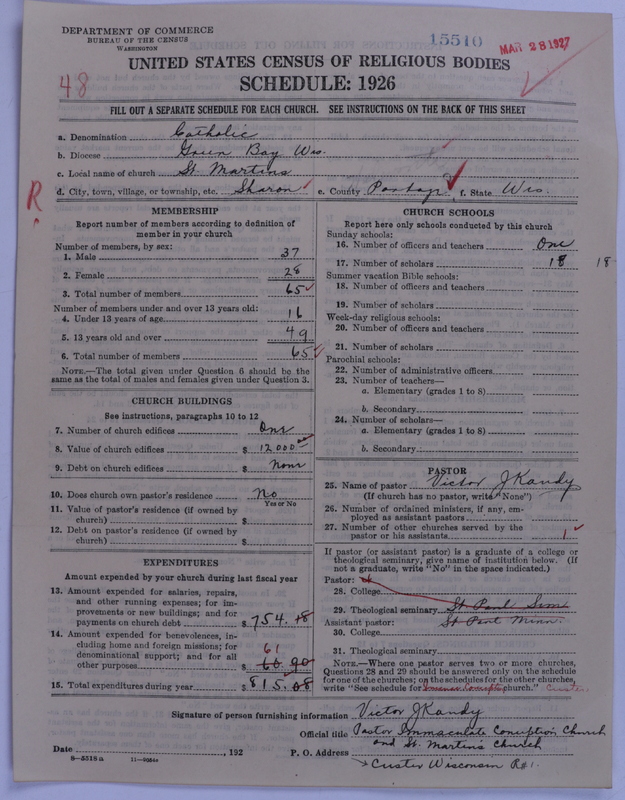 DEPARTMENT OF COMMERCE
BUREAU OF THE CENSUS
WASHINGTON
15510
MAR 28 1927
48
UNITED STATES CENSUS OF RELIGIOUS BODIES
SCHEDULE: 1926
FILL OUT A SEPARATE SCHEDULE FOR EACH CHURCH. SEE INSTRUCTIONS ON THE BACK OF THIS SHEET
a. Denomination Catholic
b. Diocese Green Bay Wis.
c. Local name of church St. Martins
d. City, town, village, or township, etc. Sharon e. County Portage f. State Wis.
R
MEMBERSHIP
Report number of members according to definition of
member in your church
Number of members, by sex:
1. Male 37
2. Female 28
3. Total number of members 65
Number of members under and over 13 years old:
4. Under 13 years of age 16
5. 13 years old and over 49
6. Total number of members 65
NOTE.—The total given under Question 6 should be the
same as the total of males and females given under Question 3.
CHURCH BUILDINGS
See instructions, paragraphs 10 to 12
7. Number of church edifices One
8. Value of church edifices $ 12000
9. Debt on church edifices $ None
10. Does church own pastor's residence No
Yes or No
11. Value of pastor's residence (if owned by
church) $
12. Debt on pastor's residence (if owned by
church) $
EXPENDITURES
Amount expended by your church during last fiscal year
13. Amount expended for salaries, repairs,
and other running expenses; for im-
provements or new buildings; and for
payments on church debt $ 754.18
14. Amount expended for benevolences, in-
cluding home and foreign missions; for
denominational support; and for all 61
other purposes $ 60.90
15. Total expenditures during year $ 815.08
CHURCH SCHOOLS
Report here only schools conducted by this church
Sunday schools:
16. Number of officers and teachers One
17. Number of scholars 18 18
Summer vacation Bible schools:
18. Number of officers and teachers
19. Number of scholars
Week-day religious schools:
20. Number of officers and teachers
21. Number of scholars
Parochial schools:
22. Number of administrative officers
23. Number of teachers—
a. Elementary (grades 1 to 8)
b. Secondary
24. Number of scholars—
a. Elementary (grades 1 to 8)
b. Secondary
PASTOR
25. Name of pastor Victor J Kandy
(If church has no pastor, write "None")
26. Number of ordained ministers, if any, em-
ployed as assistant pastors
27. Number of other churches served by the
pastor or his assistants 1
If pastor (or assistant pastor) is a graduate of a college or
theological seminary, give name of institution below. (If
not a graduate, write "No" in the space indicated.)
Pastor:
28. College
29. Theological seminary St Paul Sem
Assistant pastor: St Paul Minn.
30. College
31. Theological seminary
NOTE.—Where one pastor serves two or more churches,
Questions 28 and 29 should be answered only on the schedule
for one of the churches; on the schedules for the other churches,
write "See schedule for church." Custer
Signature of person furnishing information Victor J Kandy
Official title Pastor Immaculate Conception Church
and St. Martins Church
Date , 192 P. O. Address Custer Wisconsin R#1.
8—5518a 11—9554a